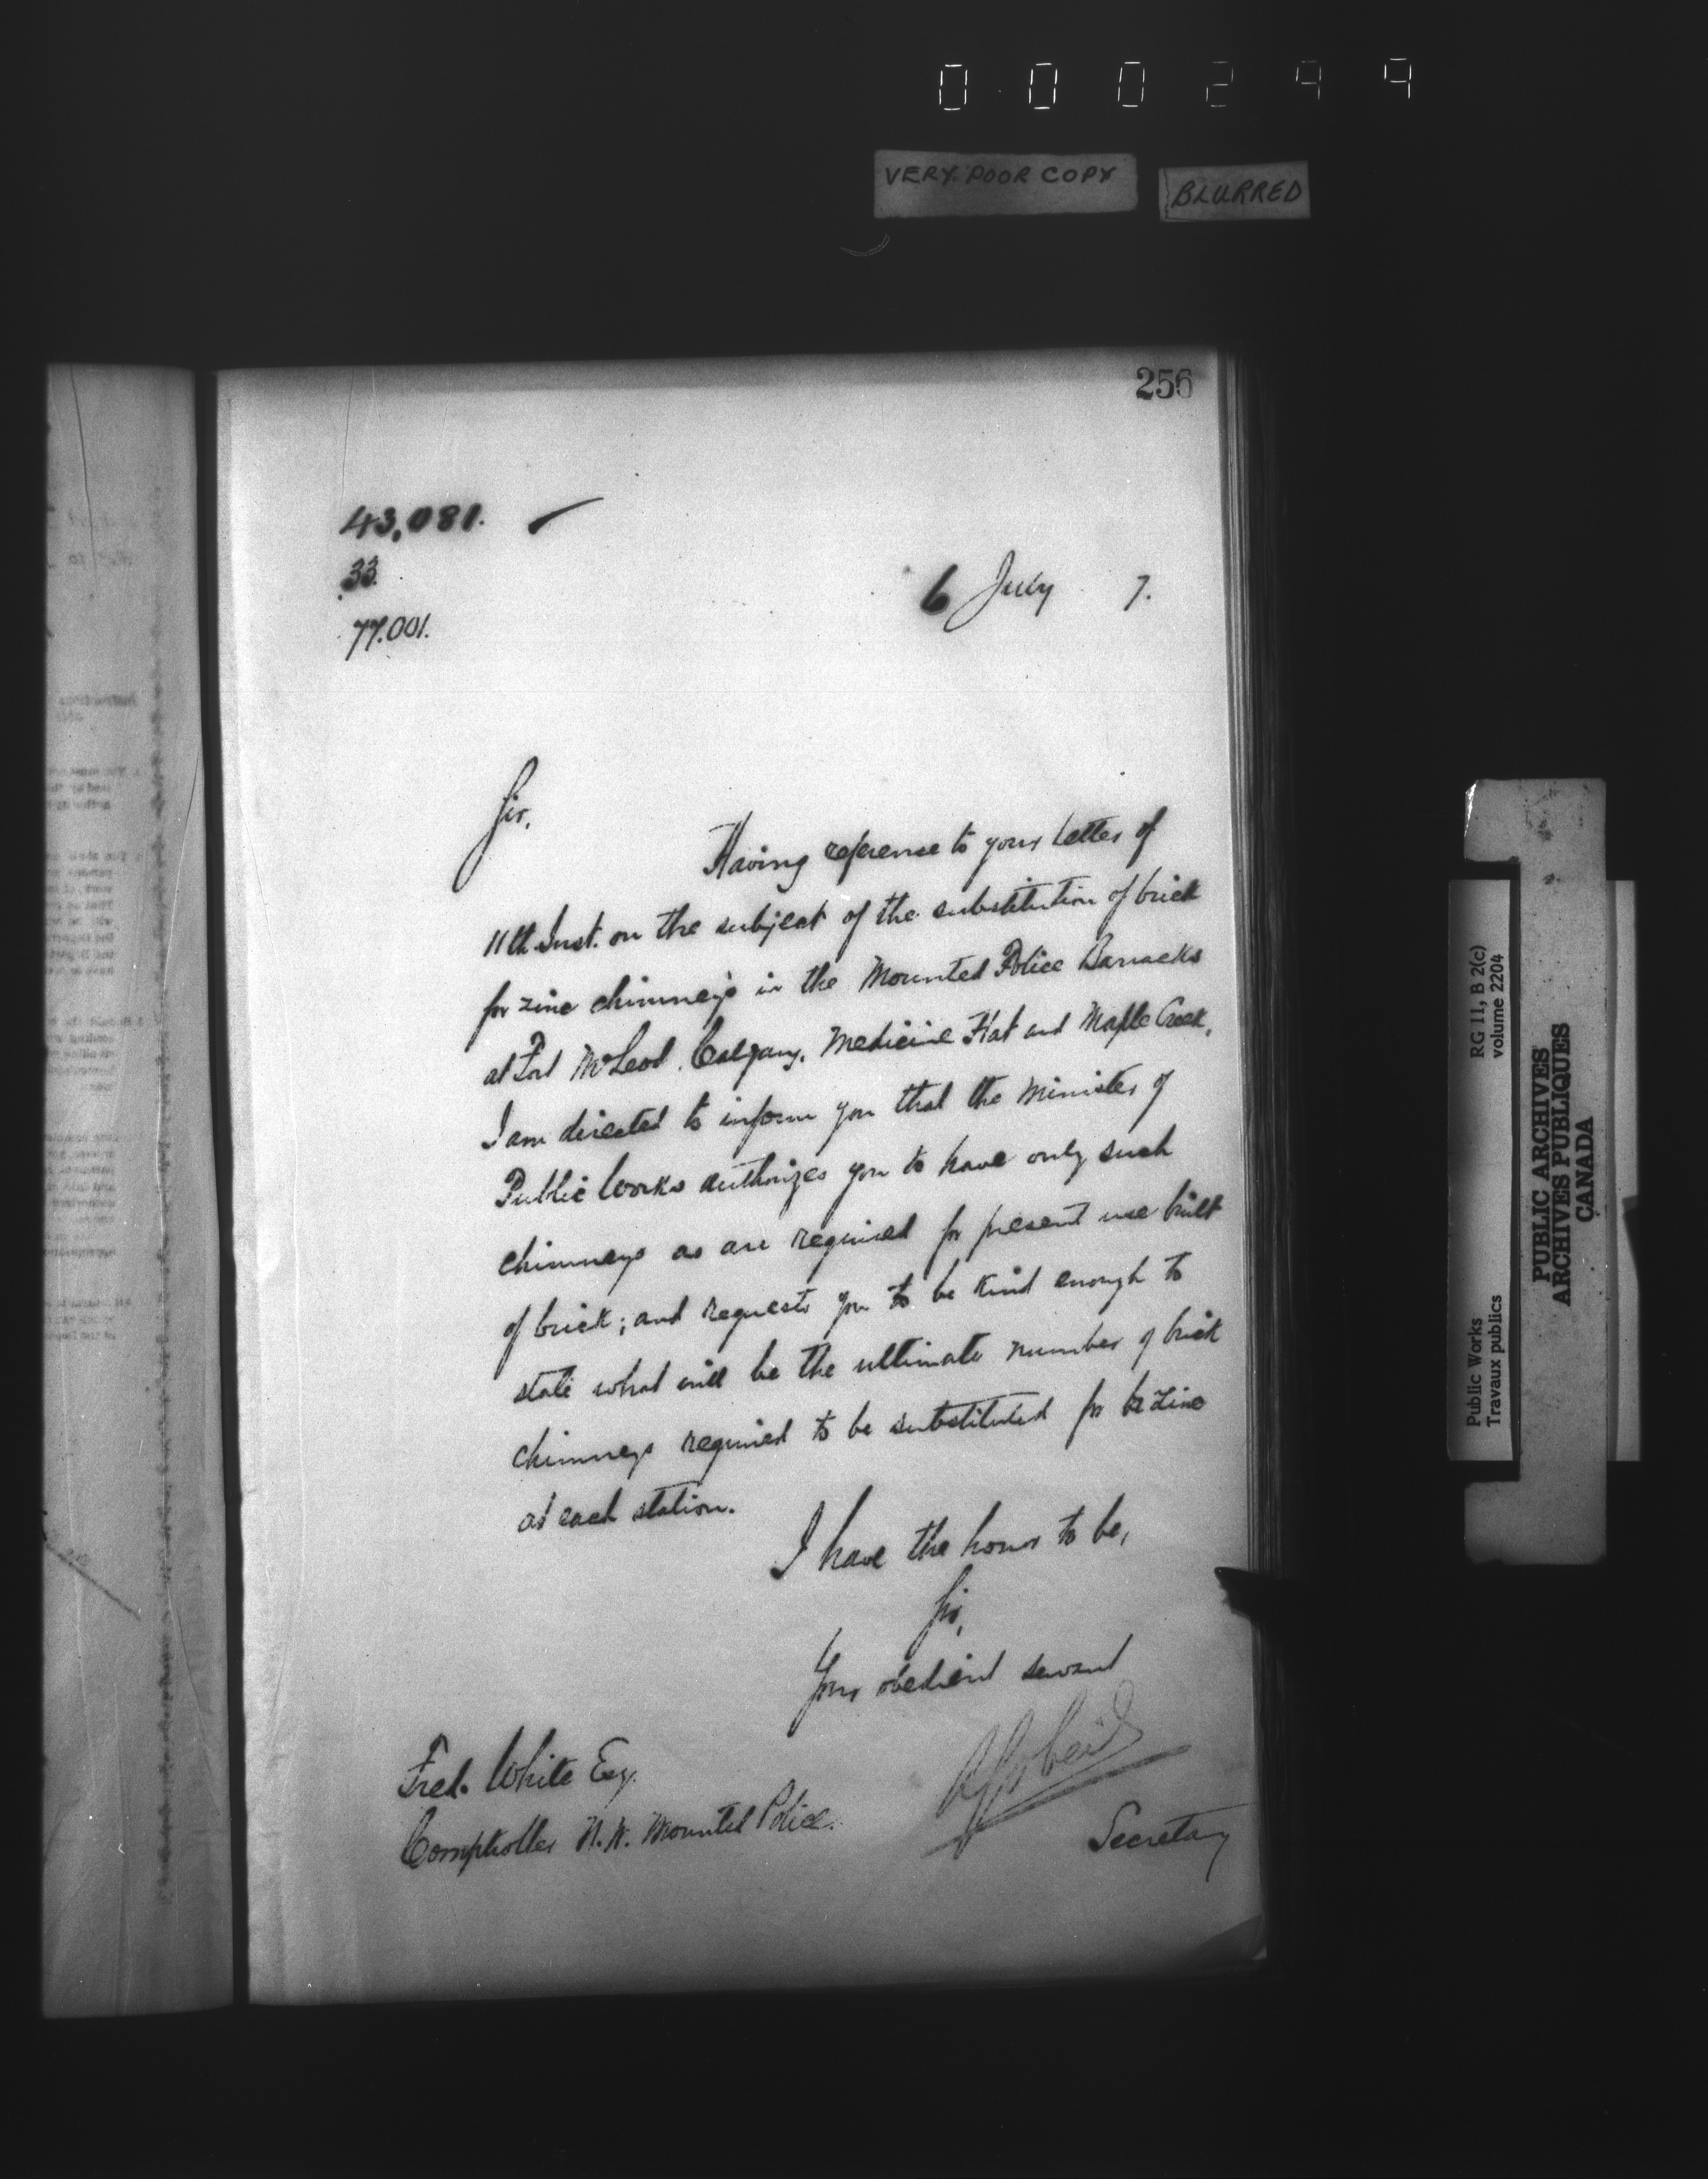 000299
VERY POOR COPY
BLURRED
256
43,081.
33.
77.001.
6 July 7.
Sir,
Having reference to your letter of
11th Inst. on the subject of the substitution of brick
for zinc chimneys in the Mounted Police Barracks
at Fort McLeod, Calgary, Medicine Hat and Maple Creek,
I am directed to inform you that the Minister of
Public Works authorizes you to have only such
chimneys as are required for present use built
of brick; and requests you to be kind enough to
state what will be the ultimate number of brick
chimneys required to be substituted for zinc
at each station.
I have the honor to be,
Sir,
Your obedient servant
Secretary
Fred. White Esq.
Comptroller N.W. Mounted Police.
RG 11, B 2(c)
volume 2204
Public Works
Travaux publics
PUBLIC ARCHIVES
ARCHIVES PUBLIQUES
CANADA